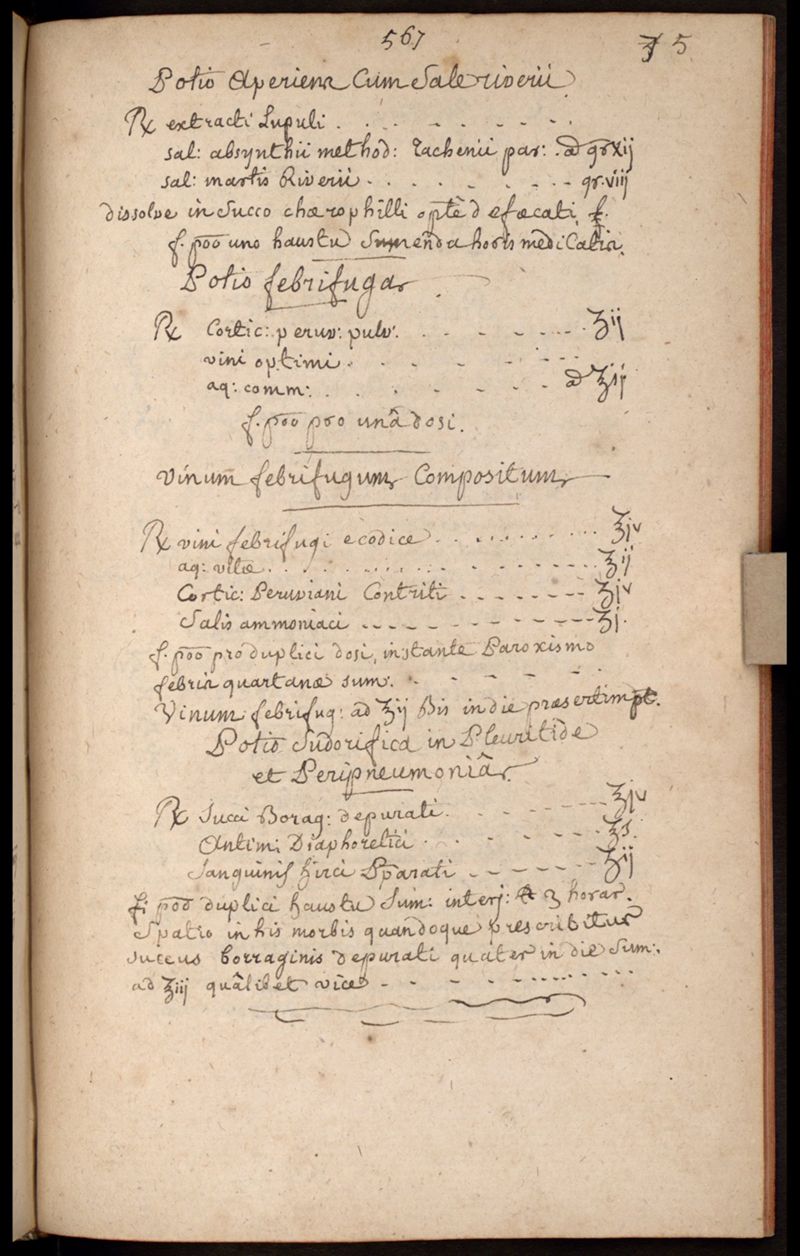 567
5
Potio Aperiens Cum Sale riverii
℞ extracti Lupuli . . - . - - - - - .
sal: absynthii method: Tachenii par: . a͞a grxij
sal: martis Riverii - . . - . - . - - - gr.viij
dissolve in Succo chærophilli optè defæcati,
f. po͞o uno haustu Sumenda horis medicatis.
Potio febrifuga
℞ Cortic: peruv: pulv: . - - - - - - ʒij
vini optimi . . - - - - - -
aq: comm: . . - . - - - a͞a ℥ij
f. po͞o pro unâ dosi.
Vinum febrifugum Compositum
℞ vini febrifugi e codice . . . . . . . . . ℥jv
aq: vitæ . . . . . . . - - - - - ℥ij
Cortic: Peruviani Contriti - - - - - - ʒjv
Salis ammoniaci - - - - - - - - - ʒj.
f. po͞o pro duplici dosi, instante Paroxismo
febris quartanæ sum: . - - - -
Vinum febrifug: ad ℥ij Bis in die præsertim
Potio Sudorifica in Pleuritide
et Peripneumoniâ.
℞ Succi Borag: depurati . - - - - - ℥jv
Antim: Diaphoretici . . - - - - ʒs.
Sanguinis hirci Pparati - - - - - - ʒij
fi po͞o duplici haustu Sum: interj: 3 horar.
Spatio in his morbis quandoque prescribitur
succus borraginis depurati quater in die Sum:
ad ℥iij quâlibet vice - - - - - . . . . . .